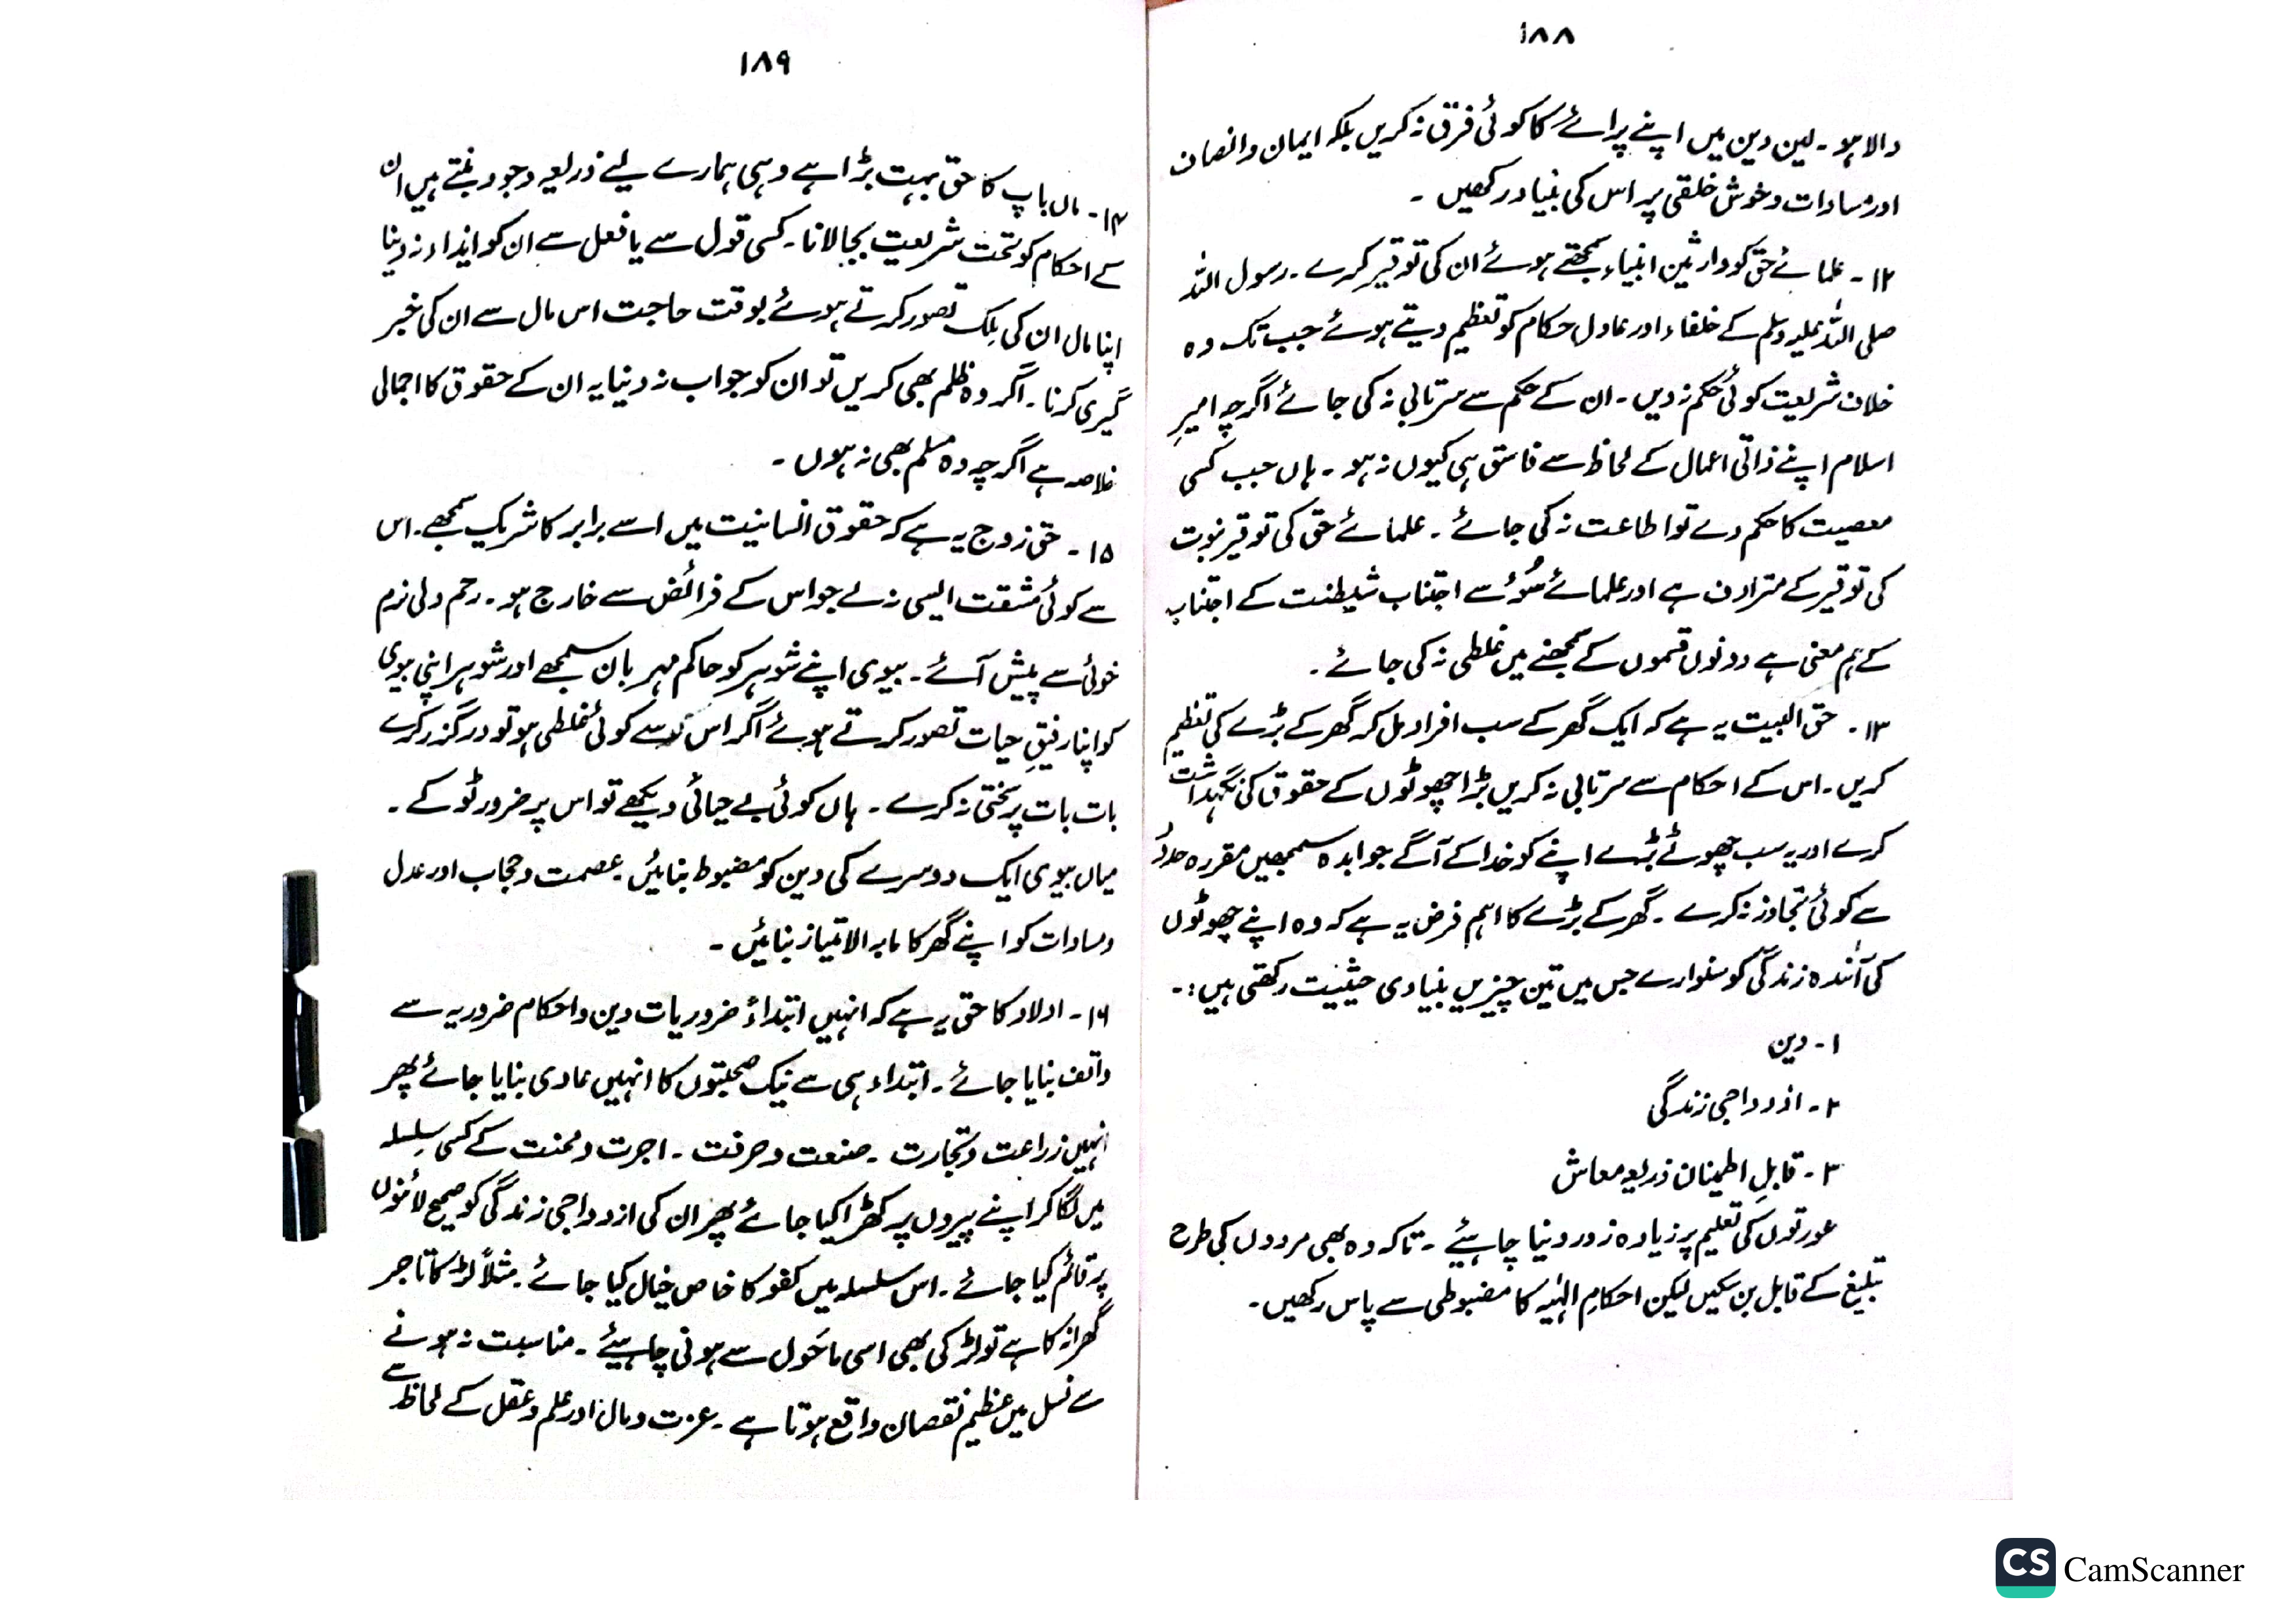 ۱۸۸
والا ہو ۔ لین دین میں اپنے پرائے کا کوئی فرق نہ کریں بلکہ ایمان وانصاف
اور مساوات وخوش خلقی پر اس کی بنیاد رکھیں ۔
۱۲ ۔ علمائے حق کو وارثین انبیاء سمجھتے ہوئے ان کی توقیر کرے ۔ رسول اللہ
صلی اللہ علیہ وسلم کے خلفاء اور عادل حکام کو تعظیم دیتے ہوئے جب تک وہ
خلاف شریعت کوئی حکم نہ دیں ۔ ان کے حکم سے سرتابی نہ کی جائے اگرچہ امیرِ
اسلام اپنے ذاتی اعمال کے لحاظ سے فاسق ہی کیوں نہ ہو ۔ ہاں جب کسی
معصیت کا حکم دے تو اطاعت نہ کی جائے ۔ علمائے حق کی توقیر نبوت
کی توقیر کے مترادف ہے اور علمائے سُوء سے اجتناب شیطنت کے اجتناب
کے ہم معنی ہے دونوں قسموں کے سمجھنے میں غلطی نہ کی جائے ۔
۱۳ ۔ حق البیت یہ ہے کہ ایک گھر کے سب افراد مل کر گھر کے بڑے کی تعظیم
کریں ۔ اس کے احکام سے سرتابی نہ کریں بڑا چھوٹوں کے حقوق کی نگہداشت
کرے اور یہ سب چھوٹے بڑے اپنے کو خدا کے آگے جوابدہ سمجھیں مقررہ حدود
سے کوئی تجاوز نہ کرے ۔ گھر کے بڑے کا اہم فرض یہ ہے کہ وہ اپنے چھوٹوں
کی آئندہ زندگی کو سنوارے جس میں تین چیزیں بنیادی حیثیت رکھتی ہیں :۔
۱ ۔ دین
۲ ۔ ازدواجی زندگی
۳ ۔ قابلِ اطمینان ذریعہ معاش
عورتوں کی تعلیم پر زیادہ زور دینا چاہئیے ۔ تاکہ وہ بھی مردوں کی طرح
تبلیغ کے قابل بن سکیں لیکن احکامِ الٰہیہ کا مضبوطی سے پاس رکھیں ۔
۱۸۹
۱۴ ۔ ماں باپ کا حق بہت بڑا ہے وہی ہمارے لیے ذریعہ وجود بنتے ہیں ان
کے احکام کو تحت شریعت بجا لانا ۔ کسی قول سے یا فعل سے ان کو ایذاء نہ دینا
اپنا مال ان کی مِلک تصور کرتے ہوئے بوقت حاجت اس مال سے ان کی خبر
گیری کرنا ۔ اگر وہ ظلم بھی کریں تو ان کو جواب نہ دینا یہ ان کے حقوق کا اجمالی
خلاصہ ہے اگرچہ وہ مسلم بھی نہ ہوں ۔
۱۵ ۔ حق زوج یہ ہے کہ حقوق انسانیت میں اسے برابر کا شریک سمجھے ۔ اس
سے کوئی مشقت ایسی نہ لے جو اس کے فرائض سے خارج ہو ۔ رحم دلی نرم
خوئی سے پیش آئے ۔ بیوی اپنے شوہر کو حاکم مہربان سمجھے اور شوہر اپنی بیوی
کو اپنا رفیقِ حیات تصور کرتے ہوئے اگر اس سے کوئی غلطی ہو تو درگزر کرے
بات بات پر سختی نہ کرے ۔ ہاں کوئی بے حیائی دیکھے تو اس پر ضرور ٹوکے ۔
میاں بیوی ایک دوسرے کی دین کو مضبوط بنائیں ۔ عصمت وحجاب اور عدل
ومساوات کو اپنے گھر کا مابہ الامتیاز بنائیں ۔
۱۶ ۔ اولاد کا حق یہ ہے کہ انہیں ابتداءً ضروریات دین واحکام ضروریہ سے
واقف بنایا جائے ۔ ابتداء ہی سے نیک صحبتوں کا انہیں عادی بنایا جائے پھر
انہیں زراعت وتجارت ۔ صنعت وحرفت ۔ اجرت ومحنت کے کسی سلسلہ
میں لگا کر اپنے پیروں پر کھڑا کیا جائے پھر ان کی ازدواجی زندگی کو صحیح لائنوں
پر قائم کیا جائے ۔ اس سلسلہ میں کفو کا خاص خیال کیا جائے ۔ مثلاً لڑکا تاجر
گھرانہ کا ہے تو لڑکی بھی اسی ماحَول سے ہونی چاہئیے ۔ مناسبت نہ ہونے
سے نسل میں عظیم نقصان واقع ہوتا ہے ۔ عزت ومال اور علم وعقل کے لحاظ سے
CS CamScanner